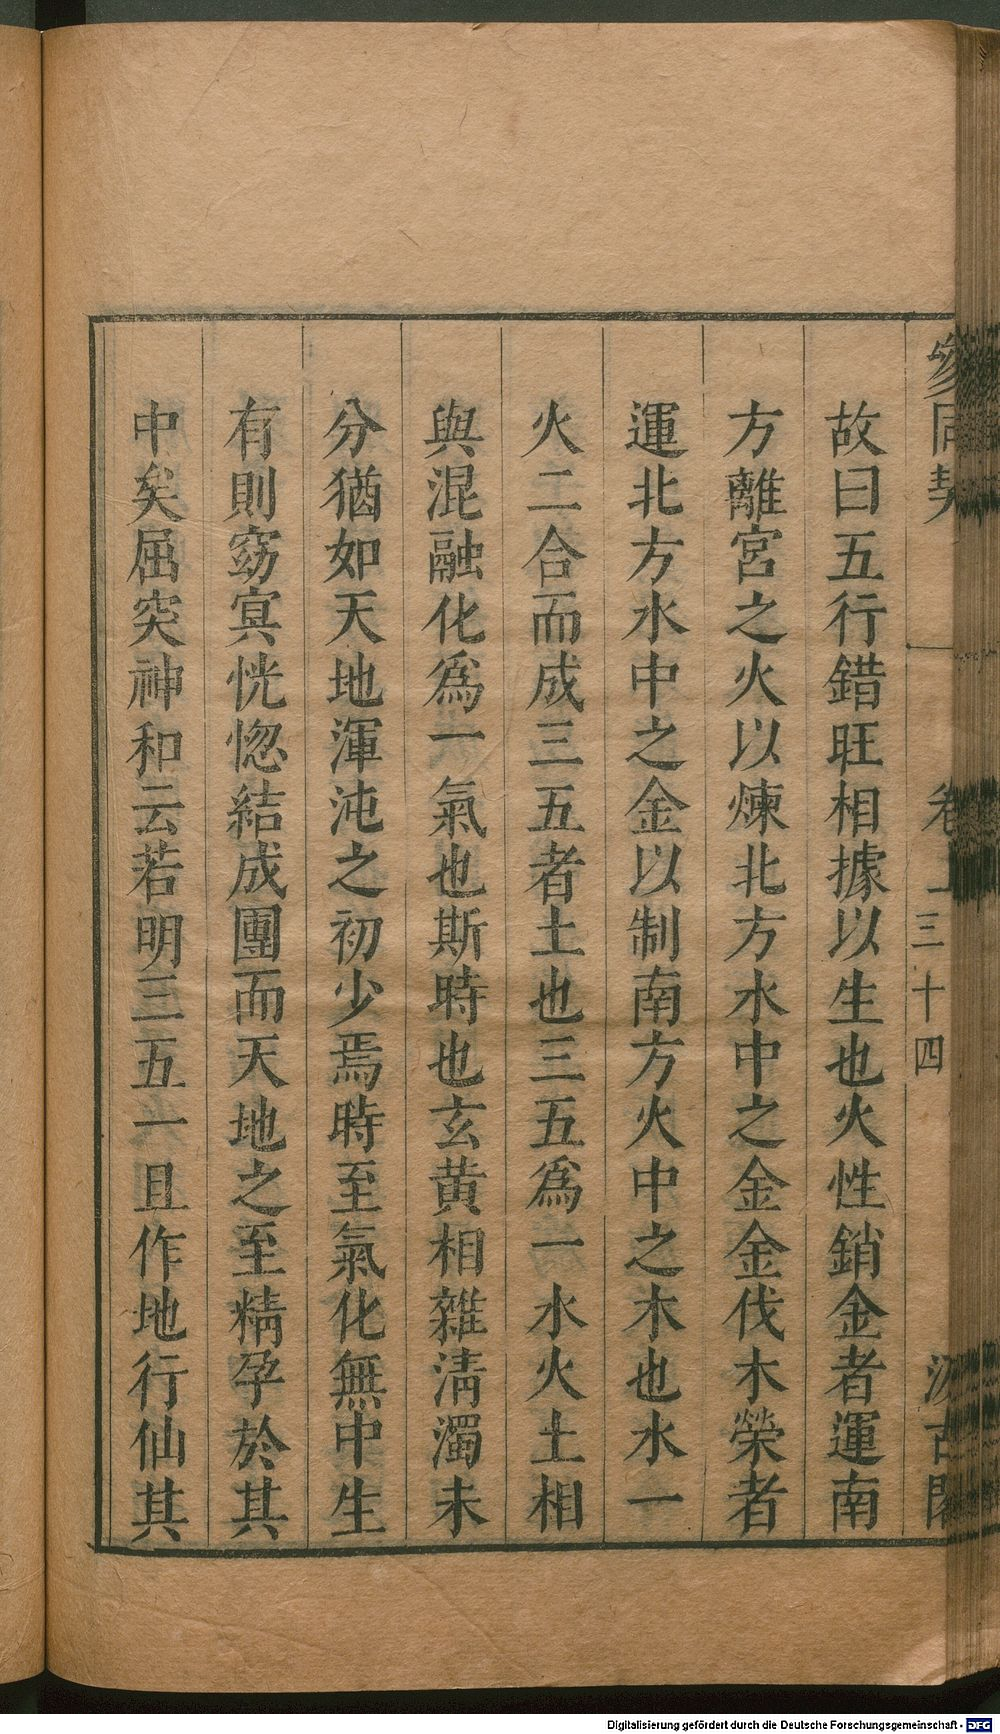 參同契 卷上 三十四 汲古閣
故曰五行錯旺相據以生也火性銷金者運南
方離宮之火以煉北方水中之金金伐木榮者
運北方水中之金以制南方火中之木也水一
火二合而成三五者土也三五爲一水火土相
與混融化爲一氣也斯時也玄黃相雜清濁未
分猶如天地渾沌之初少焉時至氣化無中生
有則窈冥恍惚結成團而天地之至精孕於其
中矣屈突神和云若明三五一且作地行仙其
Digitalisierung gefördert durch die Deutsche Forschungsgemeinschaft - DFG